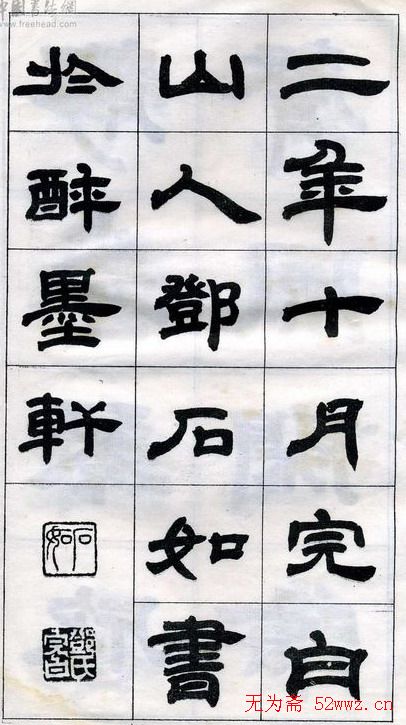 中国书法網
www.freehead.com
二年十月完白
山人鄧石如書
於醉墨軒
石如
鄧氏完白
无为斋 52wwz.cn